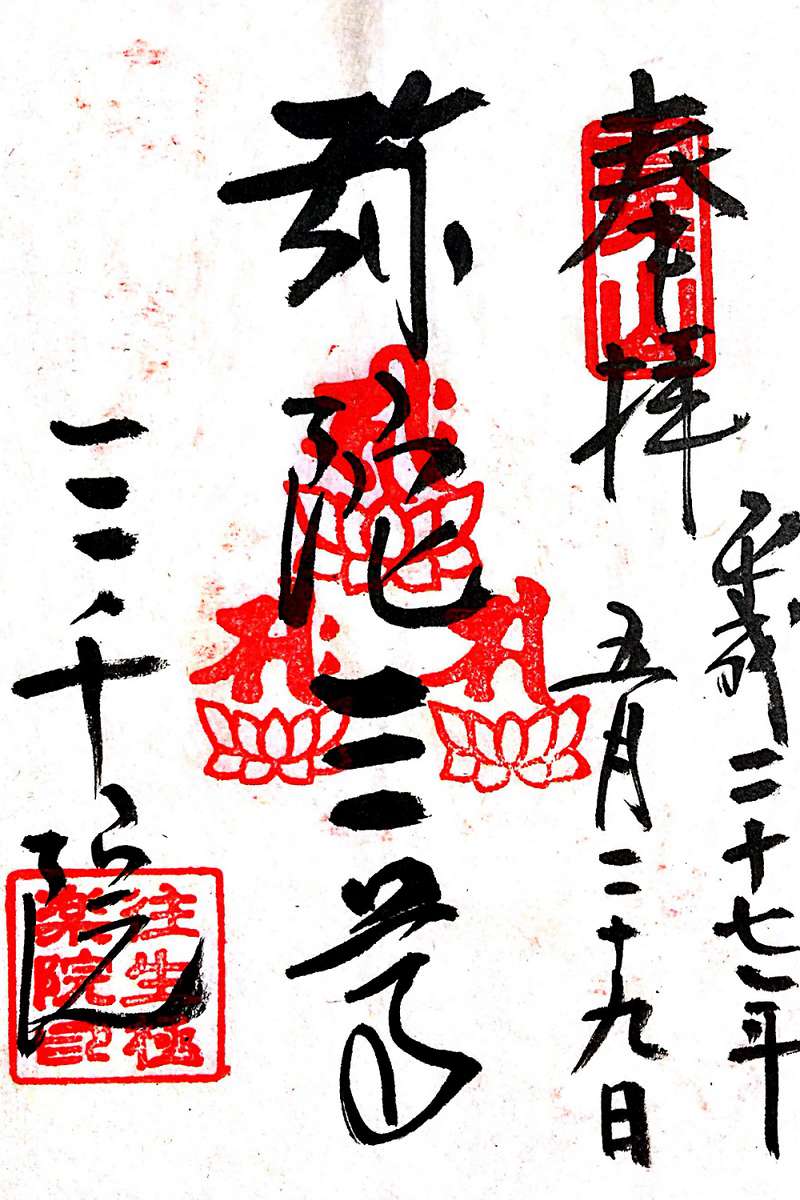 奉拝
魚山
平成二十七年
五月二十九日
弥陀三尊
三千院
往生極
楽院印